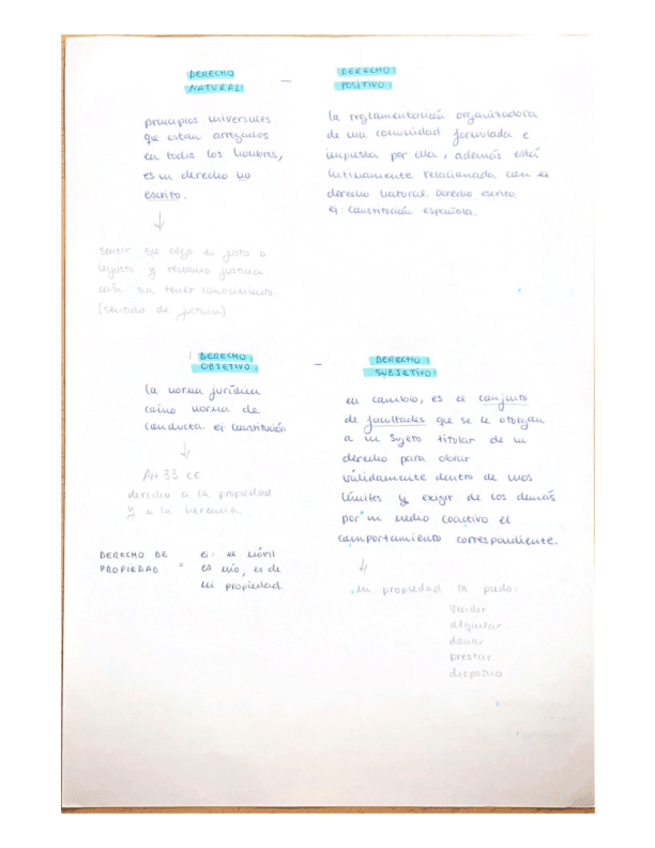 DERECHO
NATURAL
-
DERECHO
POSITIVO
principios universales
que estan arregados
en todos los hombres,
es un derecho no
escrito.
sentir que algo es justo o
injusto y reclamo justicia
aún sin tener conocimiento.
(sentido de justicia)
la reglamentación organizadora
de una comunidad formulada e
impuesta por ella, además está
íntimamente relacionada con el
derecho natural. Derecho escrito.
ej: Constitución española.
DERECHO
OBJETIVO
-
DERECHO
SUBJETIVO
la norma jurídica
como norma de
conducta ej: Constitución
Art 33 CE
derecho a la propiedad
y a la herencia.
DERECHO DE
PROPIEDAD
=
ej: el móvil
es mío, es de
mi propiedad
en cambio, es el conjunto
de facultades que se le otorgan
a un sujeto titular de un
derecho para obrar
válidamente dentro de unos
límites y exigir de los demás
por un medio coactivo el
comportamiento correspondiente.
mi propiedad la puedo:
vender
alquilar
donar
prestar